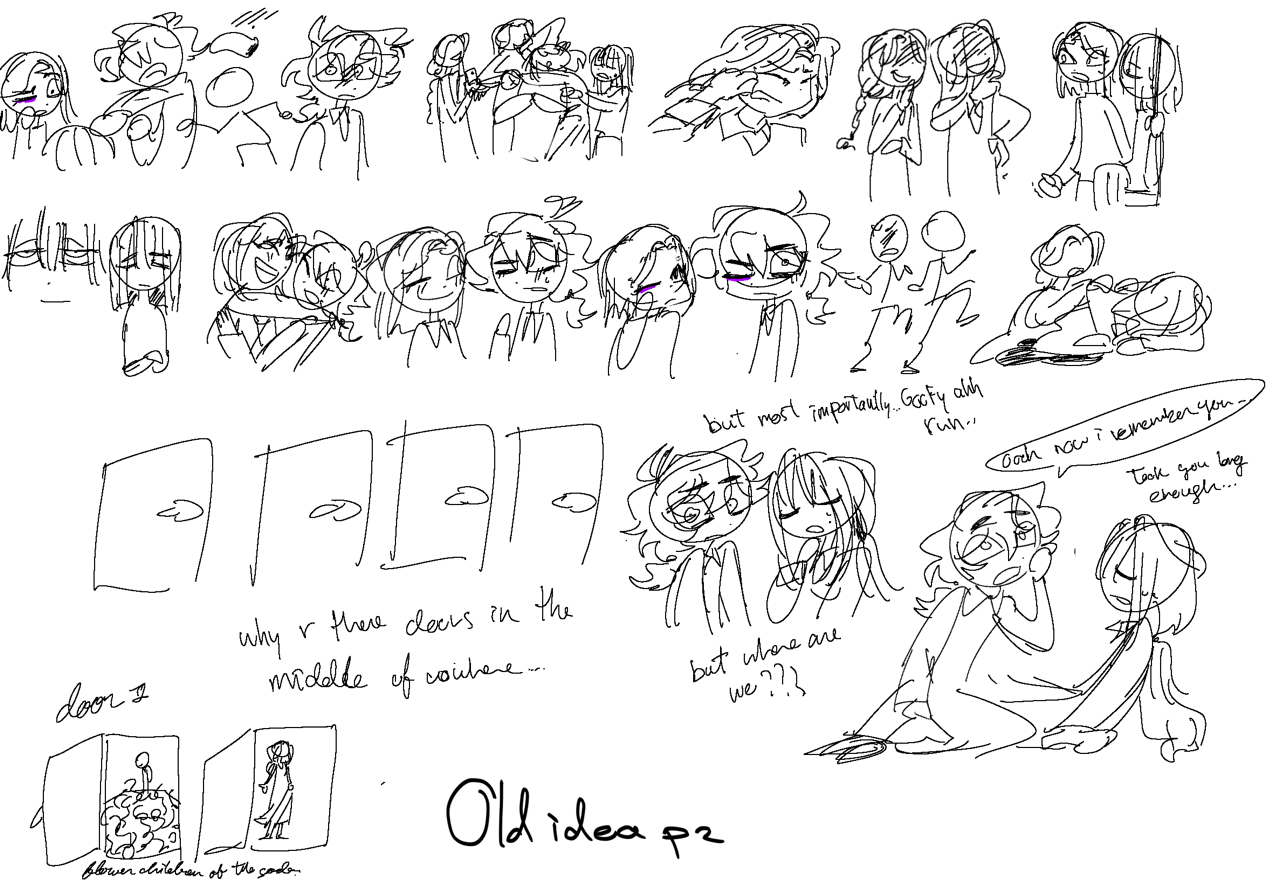 but most importantly...Goofy ahh
run..
Ooh now i remember you...
Took you long
enough...
why r there doors in the
middle of nowhere...
but where are
we???
door 1
flower children of the
Old idea p2